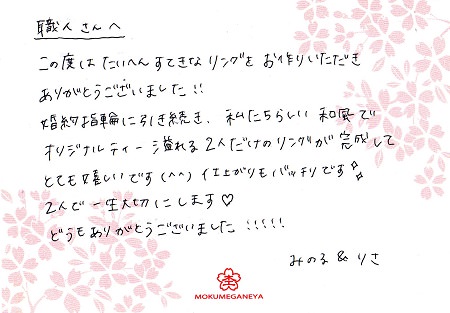 職人さんへ
この度はたいへんすてきなリングをお作りいただき
ありがとうございました!!
婚約指輪に引き続き、私たちらしい和風で
オリジナルティー溢れる2人だけのリングが完成して
とても嬉しいです(^^) 仕上がりもバッチリです
2人で一生大切にします♡
どうもありがとうございました!!!!!
みのる & りさ
MOKUMEGANEYA